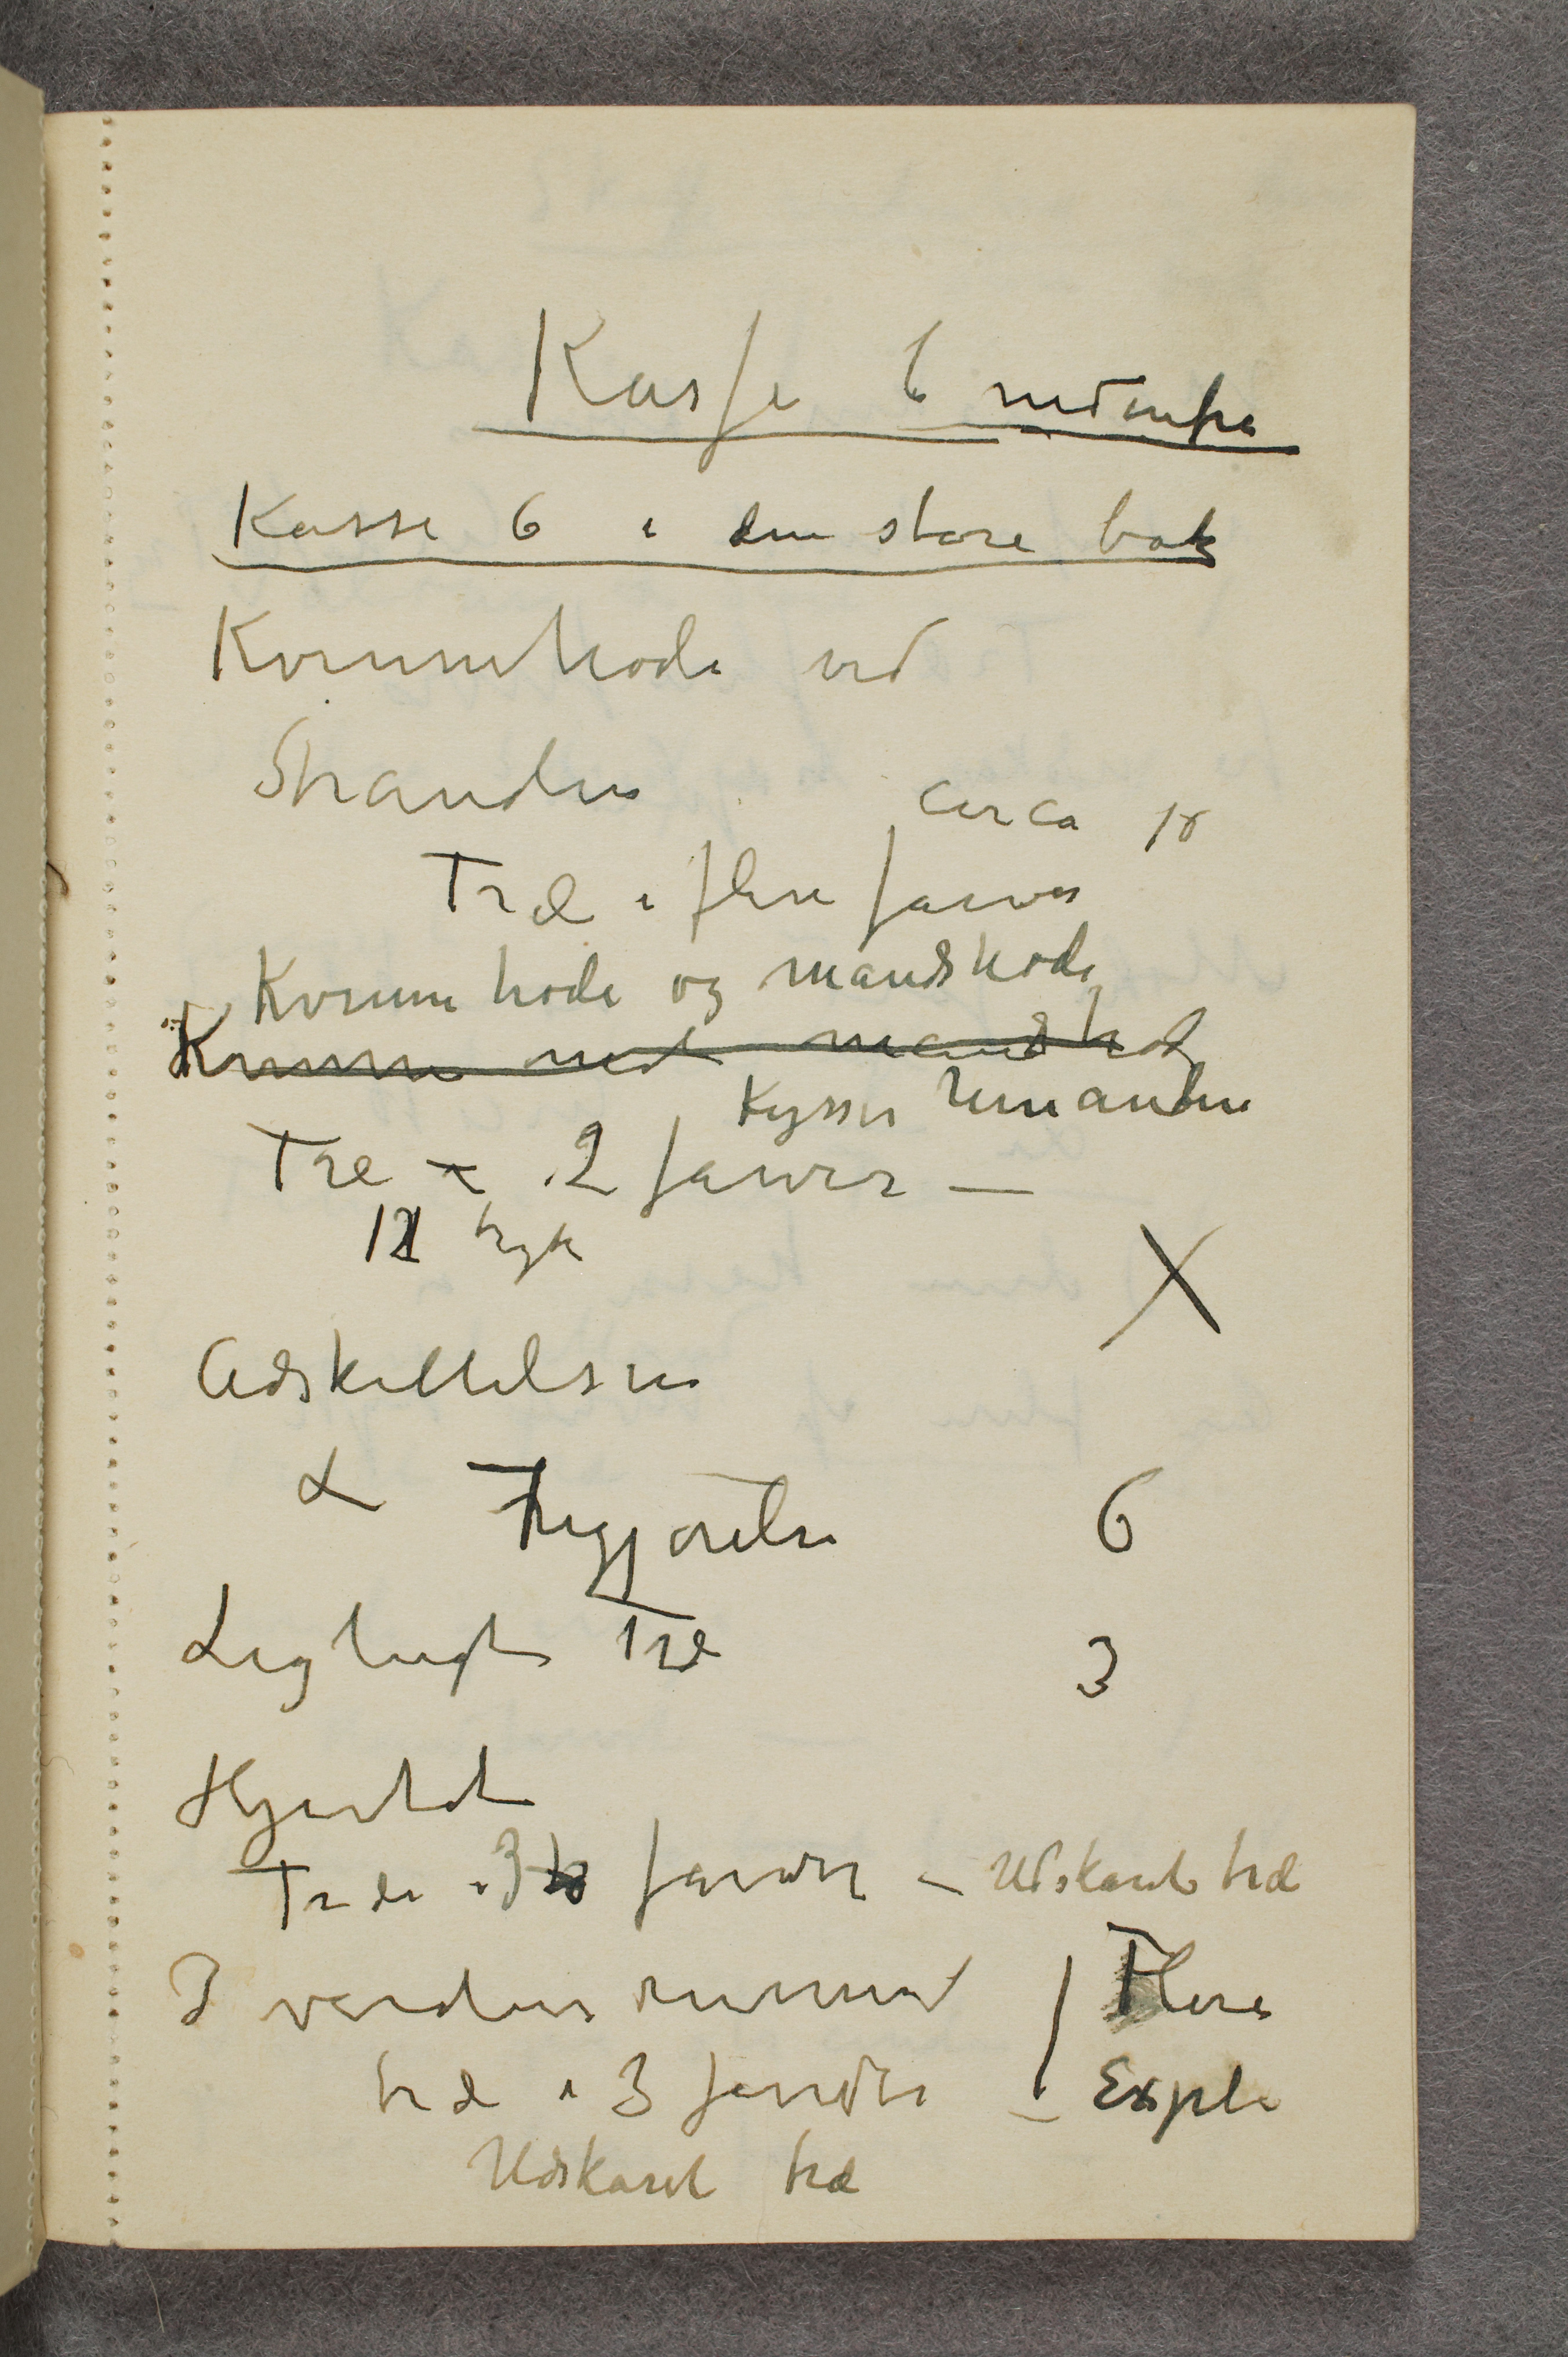 Kasse 6 nedenfra
Kasse 6 i den store bok
Kvinnehode ved
Stranden
circa 10
Træ i flere farver
Kvinnehode og mandshode
Kvinne med mandshode
Kysser hinanden
Træ i 2 farver —
12 tryk
X
Adskillelsen
L Frigjørelse 6
Liglugt Træ 3
Hjertet
Træ i 3 farver – Udskaaret træ
I verdensrummet | Flere
træ i 3 farver – Expl
Udskaaret træ